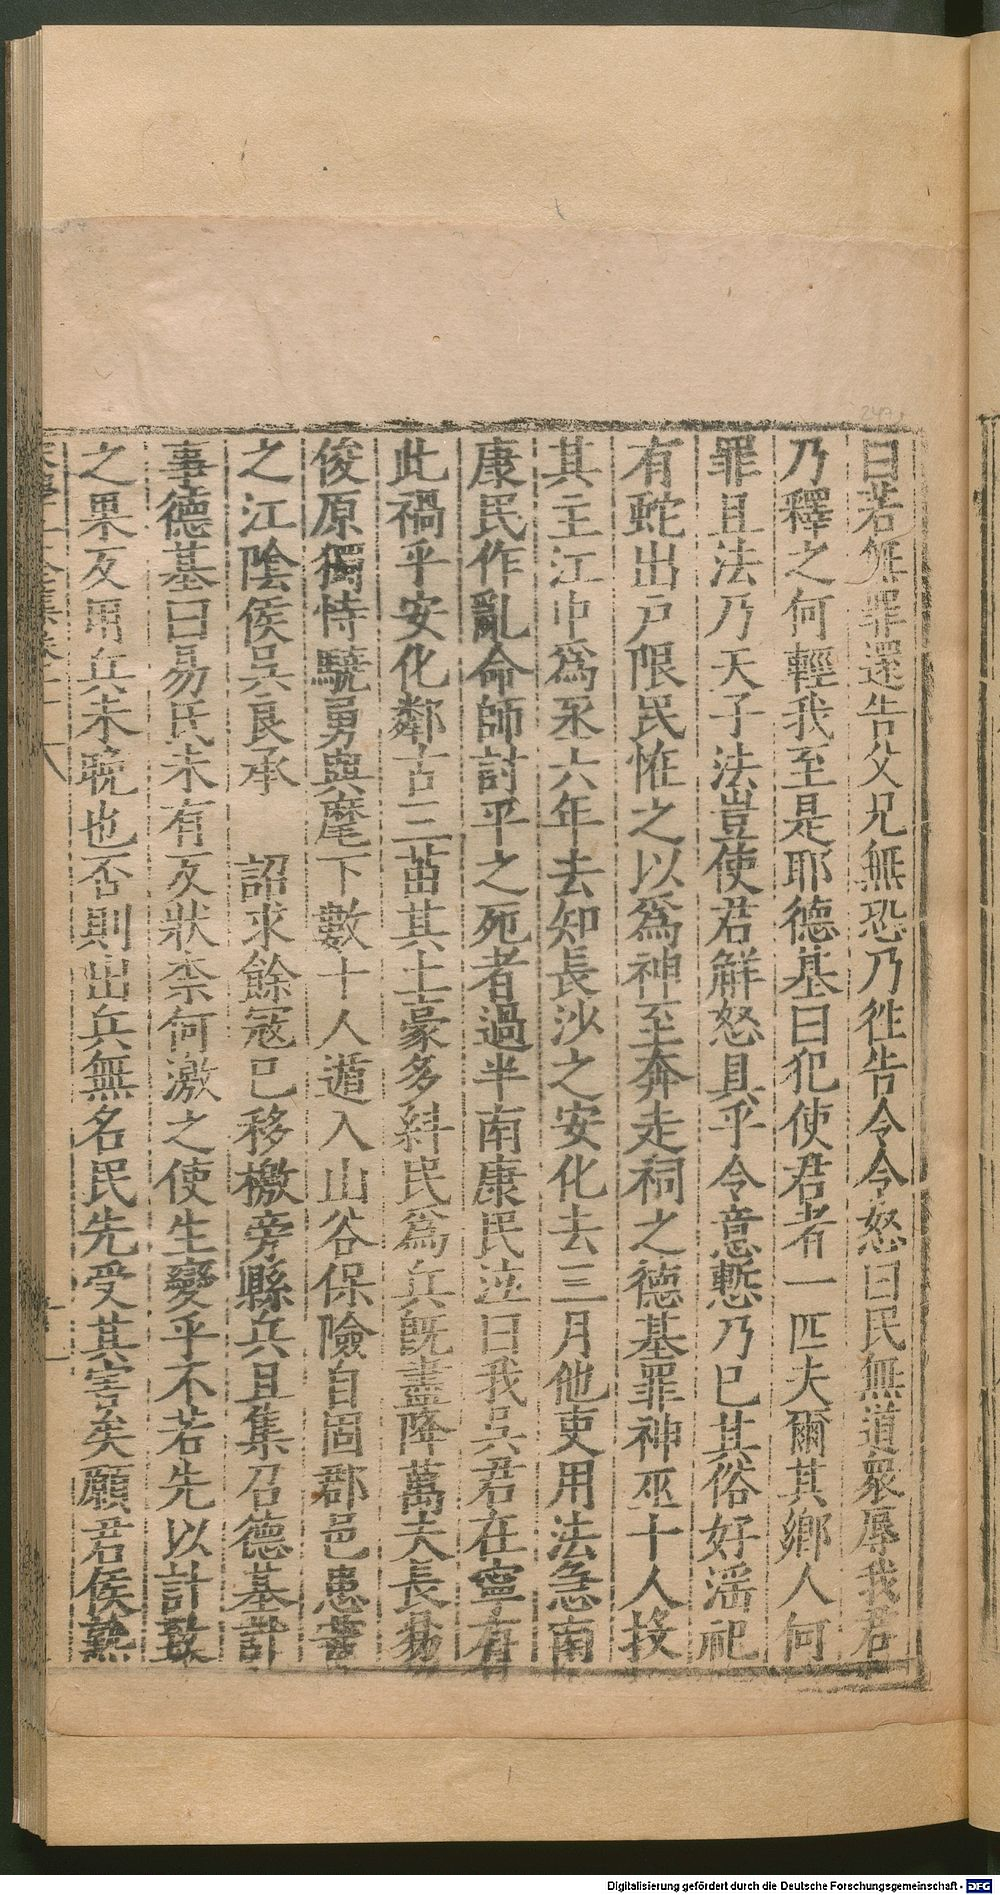 曰若無罪還告父兄無恐乃徃告令令怒曰民無道衆辱我君
乃釋之何輕我至是耶德基曰犯使君者一匹夫爾其鄉人何
罪且法乃天子法豈使君觧怒具乎令意慙乃已其俗好滛祀
有蛇出戸限民恠之以爲神至奔走祠之德基罪神巫十人投
其主江中爲丞六年去知長沙之安化去三月他吏用法急南
康民作亂命師討平之死者過半南康民泣曰我吳君在寧有
此禍乎安化鄰古三苗其土豪多糾民爲兵既盡降萬夫長易
俊原獨恃驍勇與麾下數十人遁入山谷保險自固郡邑患
之江陰侯吳良承 詔求餘宼已移檄旁縣兵且集召德基計
事德基曰易氏未有反狀柰何激之使生變乎不若先以計致
之果反用兵未晩也否則出兵無名民先受其害矣願君侯熟